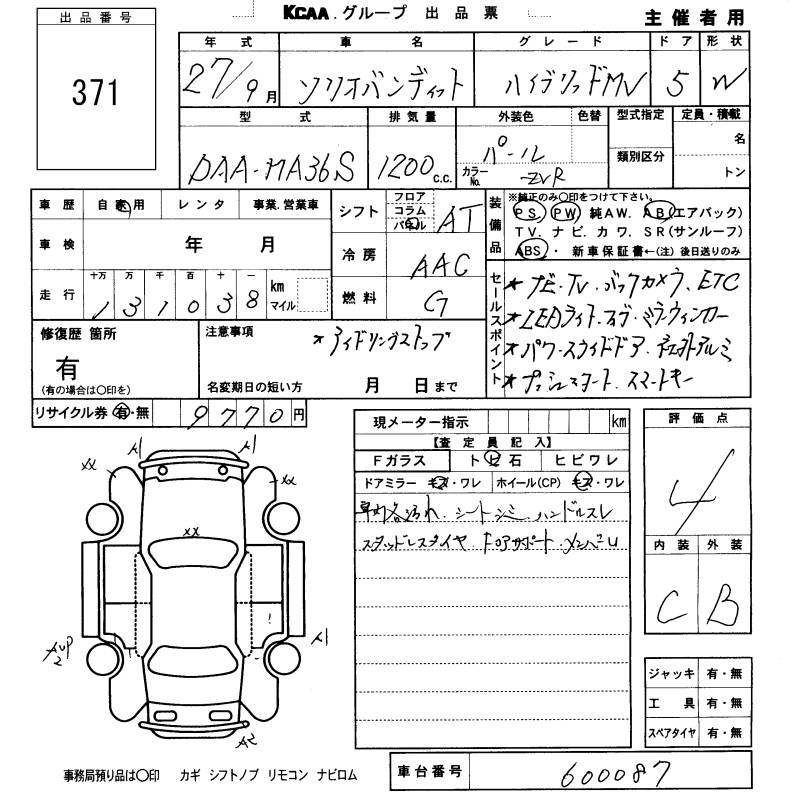 KCAA.グループ 出品票
主催者用
出品番号
371
年式 車名 グレード ドア 形状
27/9月 ソリオバンディット ハイブリッドMV 5 W
型式 排気量 外装色 色替 型式指定 定員・積載
DAA-MA36S 1200c.c. パール 類別区分 名
カラーNo. ZVR トン
車歴 自家用 レンタ 事業.営業車
シフト フロア コラム パネル AT
装備品 ※純正のみ〇印をつけて下さい。
PS. PW 純AW. AB(エアバック)
TV. ナビ. カワ. SR(サンルーフ)
ABS・ 新車保証書←(注) 後日送りのみ
車検 年 月
冷房 AAC
走行 十万 万 千 百 十 一
131038 km マイル
燃料 G
セールスポイント
*ナビ.TV.バックカメラ、ETC
*LEDライト.フォグ.ミラーウィンカー
*パワースライドドア.社外アルミ
*プッシュスタート.スマートキー
修復歴 箇所
有
(有の場合は〇印を)
注意事項
*アイドリングストップ
名変期日の短い方 月 日まで
リサイクル券 有・無 9770円
現メーター指示 km
【査定員記入】
Fガラス トビ石 ヒビワレ
ドアミラー キズ・ワレ ホイール(CP) キズ・ワレ
車内汚れ.シートシミ.ハンドルスレ
スタッドレスタイヤ.Fコアサポート.メンバーU
評価点
4
内装 外装
C B
A1 A1
XX XX
XX
!
A1
AUP
2
A2
ジャッキ 有・無
工具 有・無
スペアタイヤ 有・無
事務局預り品は〇印 カギ シフトノブ リモコン ナビロム
車台番号 600087